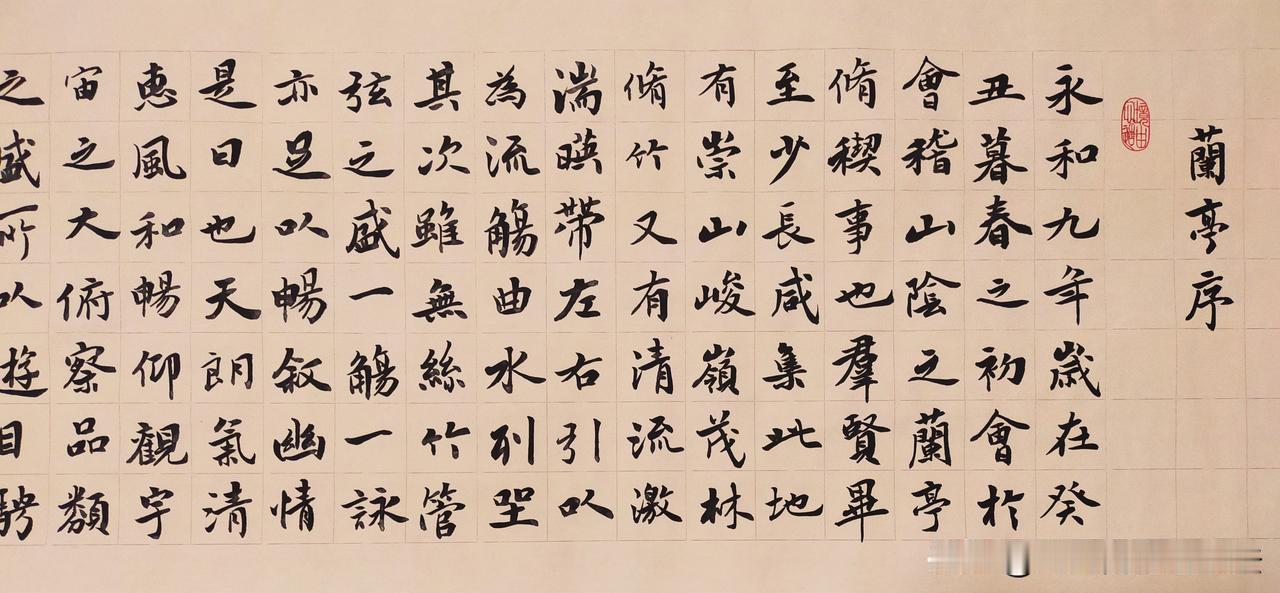 蘭亭序
永和九年歲在癸
丑暮春之初會於
會稽山陰之蘭亭
脩稧事也羣賢畢
至少長咸集此地
有崇山峻嶺茂林
脩竹又有清流激
湍暎帶左右引以
為流觴曲水列坐
其次雖無絲竹管
弦之盛一觴一詠
亦足以暢敘幽情
是日也天朗氣清
惠風和暢仰觀宇
宙之大俯察品類
之盛所以遊目騁